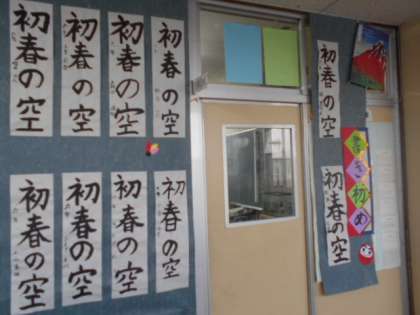 初春の空
初春の空
初春の空
初春の空
初春の空
初春の空
初春の空
初春の空
初春の空
初春の空
書き初め